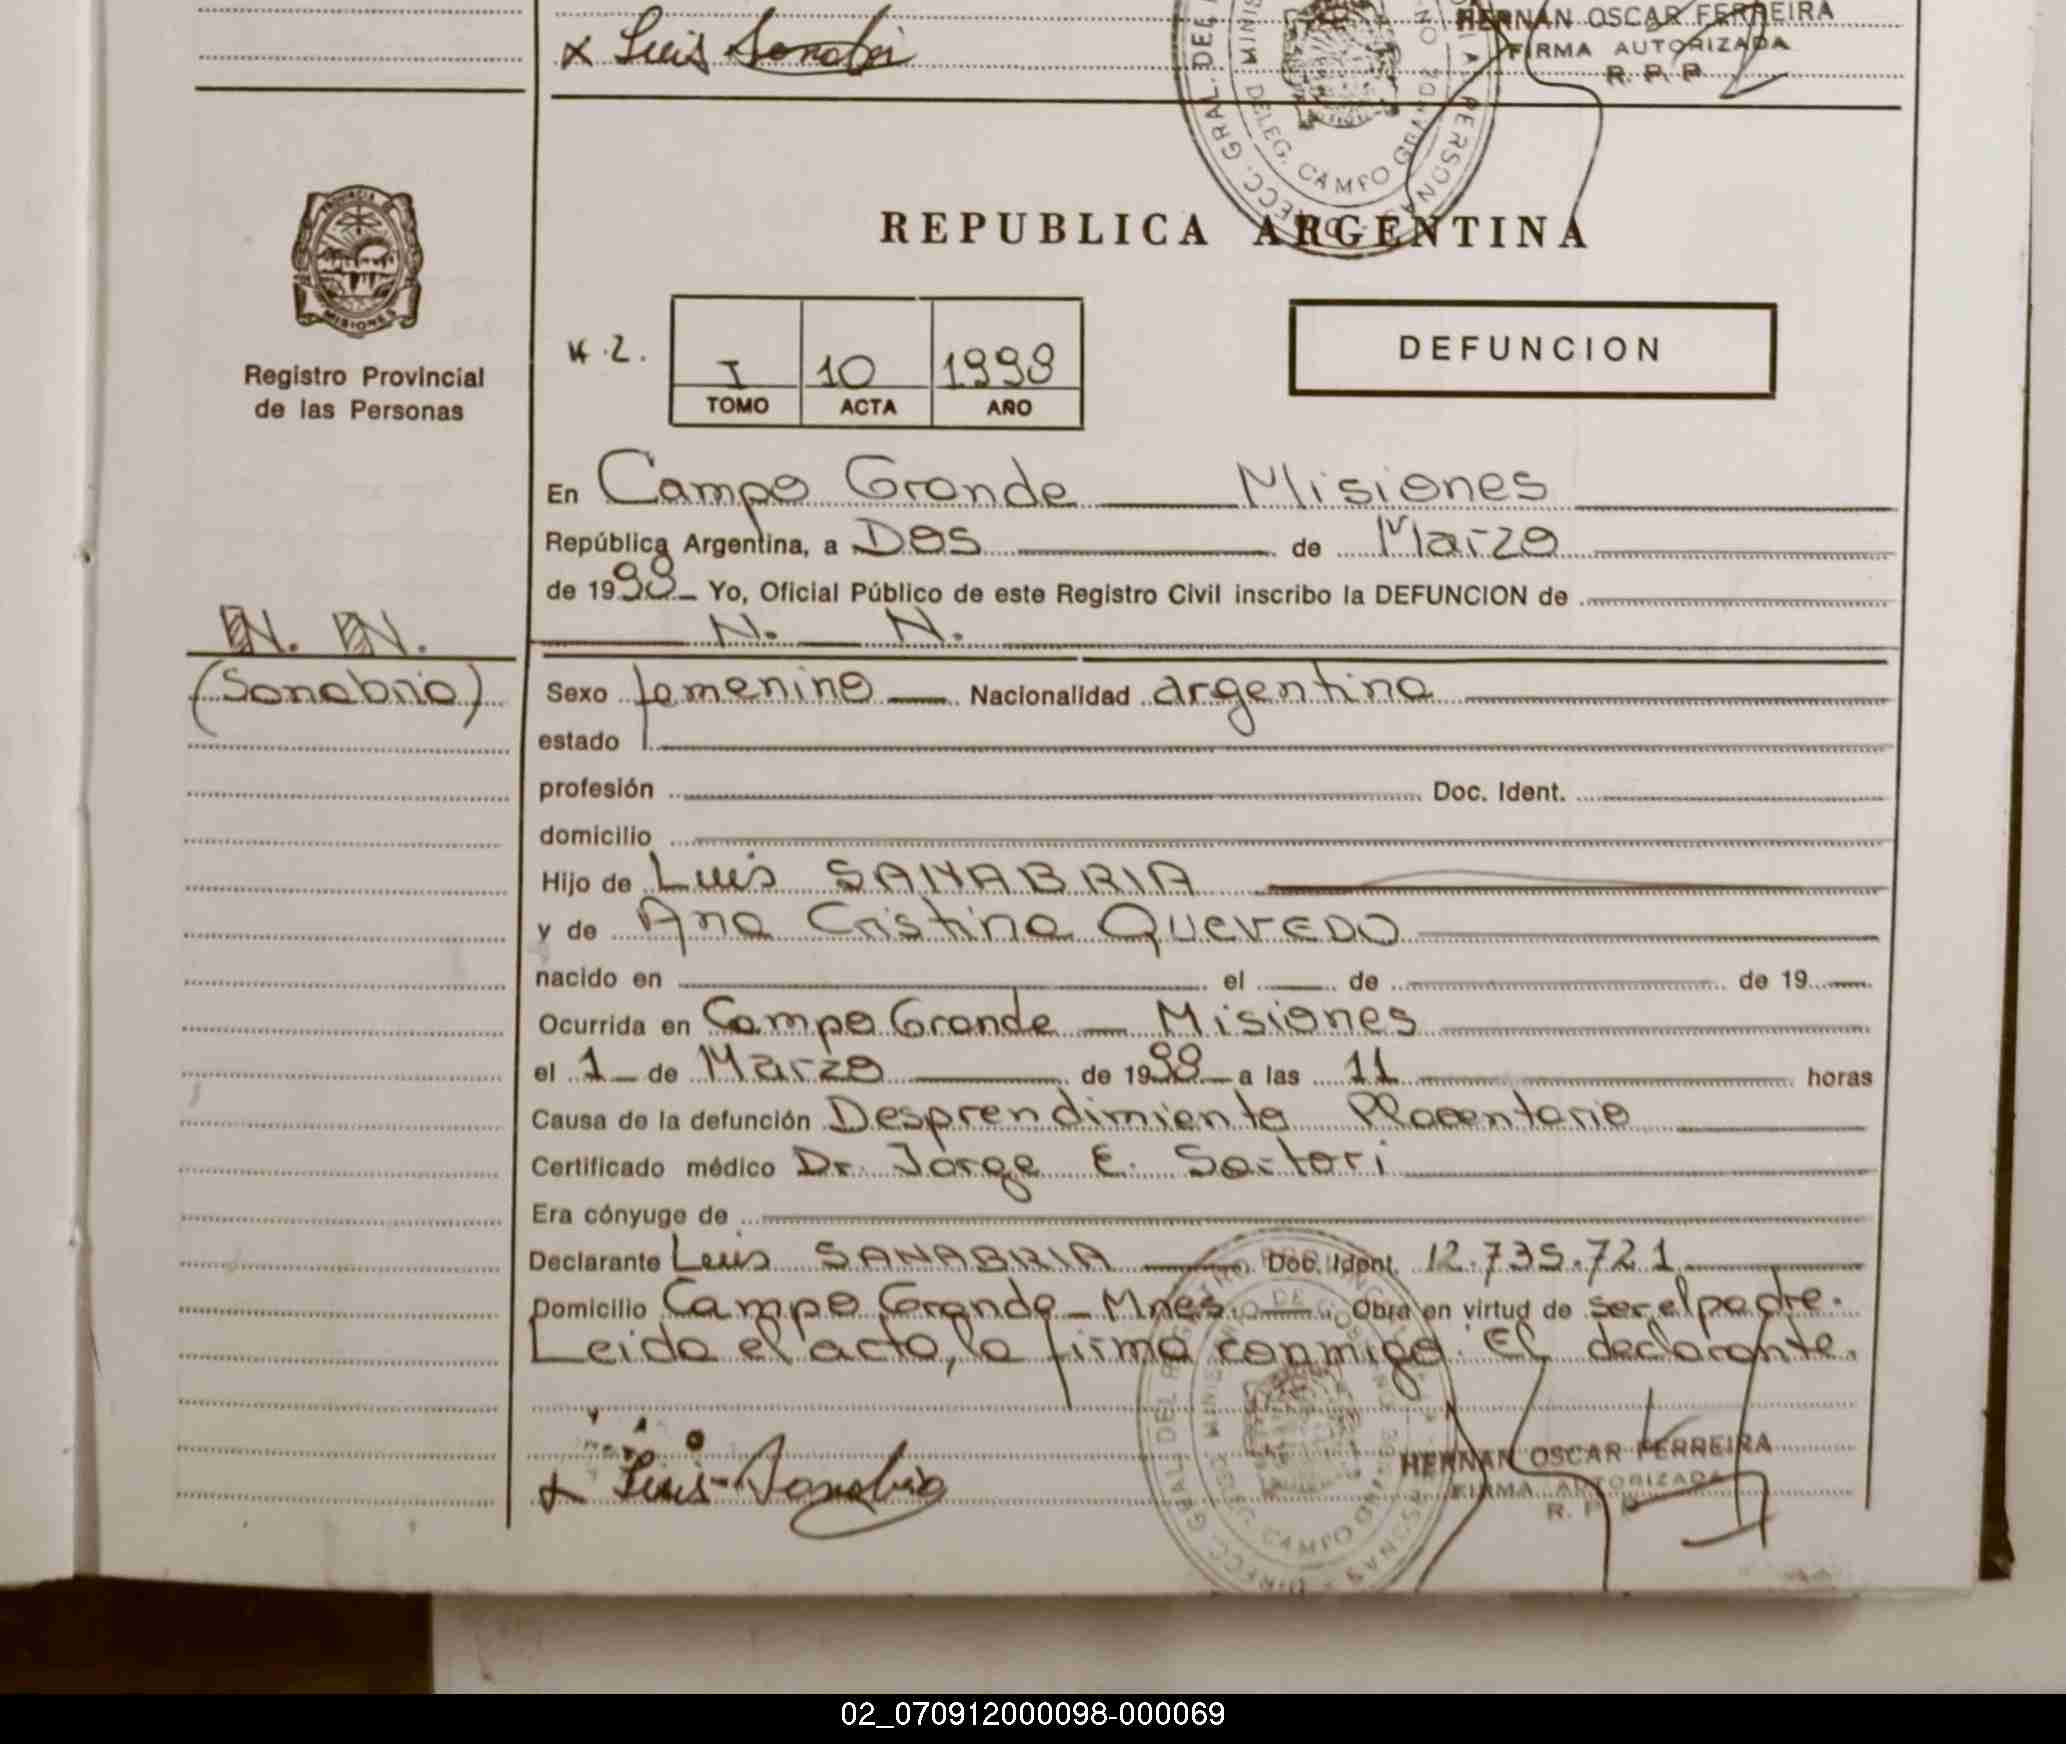 x Luis Sanabri
HERNAN OSCAR FERREIRA
FIRMA AUTORIZADA
R. P. P.
DELEG. CAMPO GRANDE
PROVINCIA DE
MISIONES
Registro Provincial
de las Personas
REPUBLICA ARGENTINA
I 10 1998
TOMO ACTA AÑO
DEFUNCION
En Campo Grande Misiones
República Argentina, a Dos de Marzo
de 1998 Yo, Oficial Público de este Registro Civil inscribo la DEFUNCION de
N. N.
N. N.
(Sanabria)
Sexo femenino Nacionalidad argentina
estado
profesión Doc. Ident.
domicilio
Hijo de Luis SANABRIA
y de Ana Cristina QUEVEDO
nacido en el de de 19
Ocurrida en Campo Grande Misiones
el 1 de Marzo de 1998 a las 11 horas
Causa de la defunción Desprendimiento Placentario
Certificado médico Dr. Jorge E. Sartori
Era cónyuge de
Declarante Luis SANABRIA Doc. Ident. 12.735.721
Domicilio Campo Grande - Mnes. Obra en virtud de ser el padre.
Leida el acta, la firma conmigo. El declarante.
x Luis Sanabria
HERNAN OSCAR FERREIRA
FIRMA AUTORIZADA
R. P. P.
02_070912000098-000069